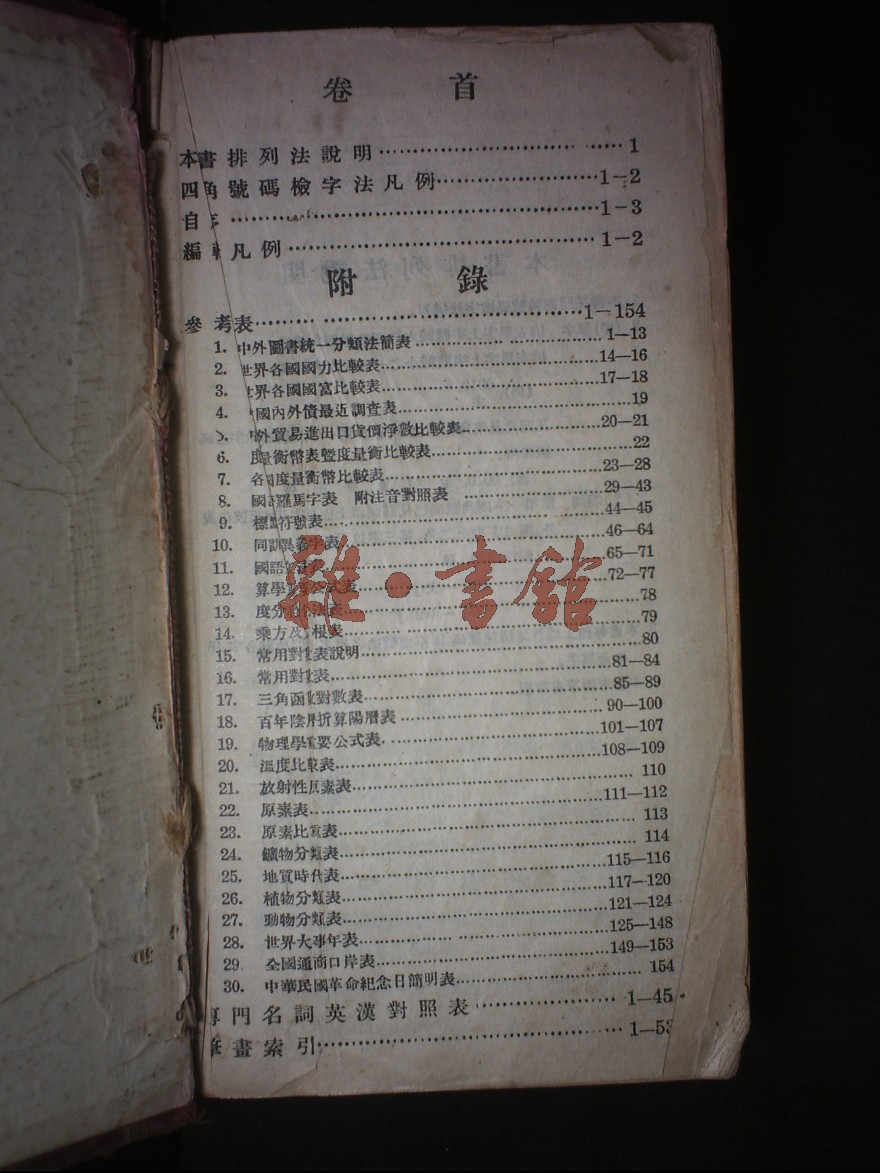 卷 首
本書排列法說明……1
四角號碼檢字法凡例……1—2
自序……1—3
編輯凡例……1—2
附 錄
參考表……1—154
1. 中外圖書統一分類法簡表……1—13
2. 世界各國國力比較表……14—16
3. 世界各國國富比較表……17—18
4. 中國內外債最近調查表……19
5. 中外貿易進出口貨價淨數比較表……20—21
6. 度量衡幣表暨度量衡比較表……22
7. 各國度量衡幣比較表……23—28
8. 國語羅馬字表 附注音對照表……29—43
9. 標點符號表……44—45
10. 同訓異義字表……46—64
11. 國語……65—71
12. 算學重要公式表……72—77
13. 度分……法表……78
14. 乘方及方根表……79
15. 常用對數表說明……80
16. 常用對數表……81—84
17. 三角函數對數表……85—89
18. 百年陰曆折算陽曆表……90—100
19. 物理學重要公式表……101—107
20. 溫度比較表……108—109
21. 放射性原素表……110
22. 原素表……111—112
23. 原素比重表……113
24. 鑛物分類表……114
25. 地質時代表……115—116
26. 植物分類表……117—120
27. 動物分類表……121—124
28. 世界大事年表……125—148
29. 全國通商口岸表……149—153
30. 中華民國革命紀念日簡明表……154
專門名詞英漢對照表……1—45
筆畫索引……1—53
雜·書館